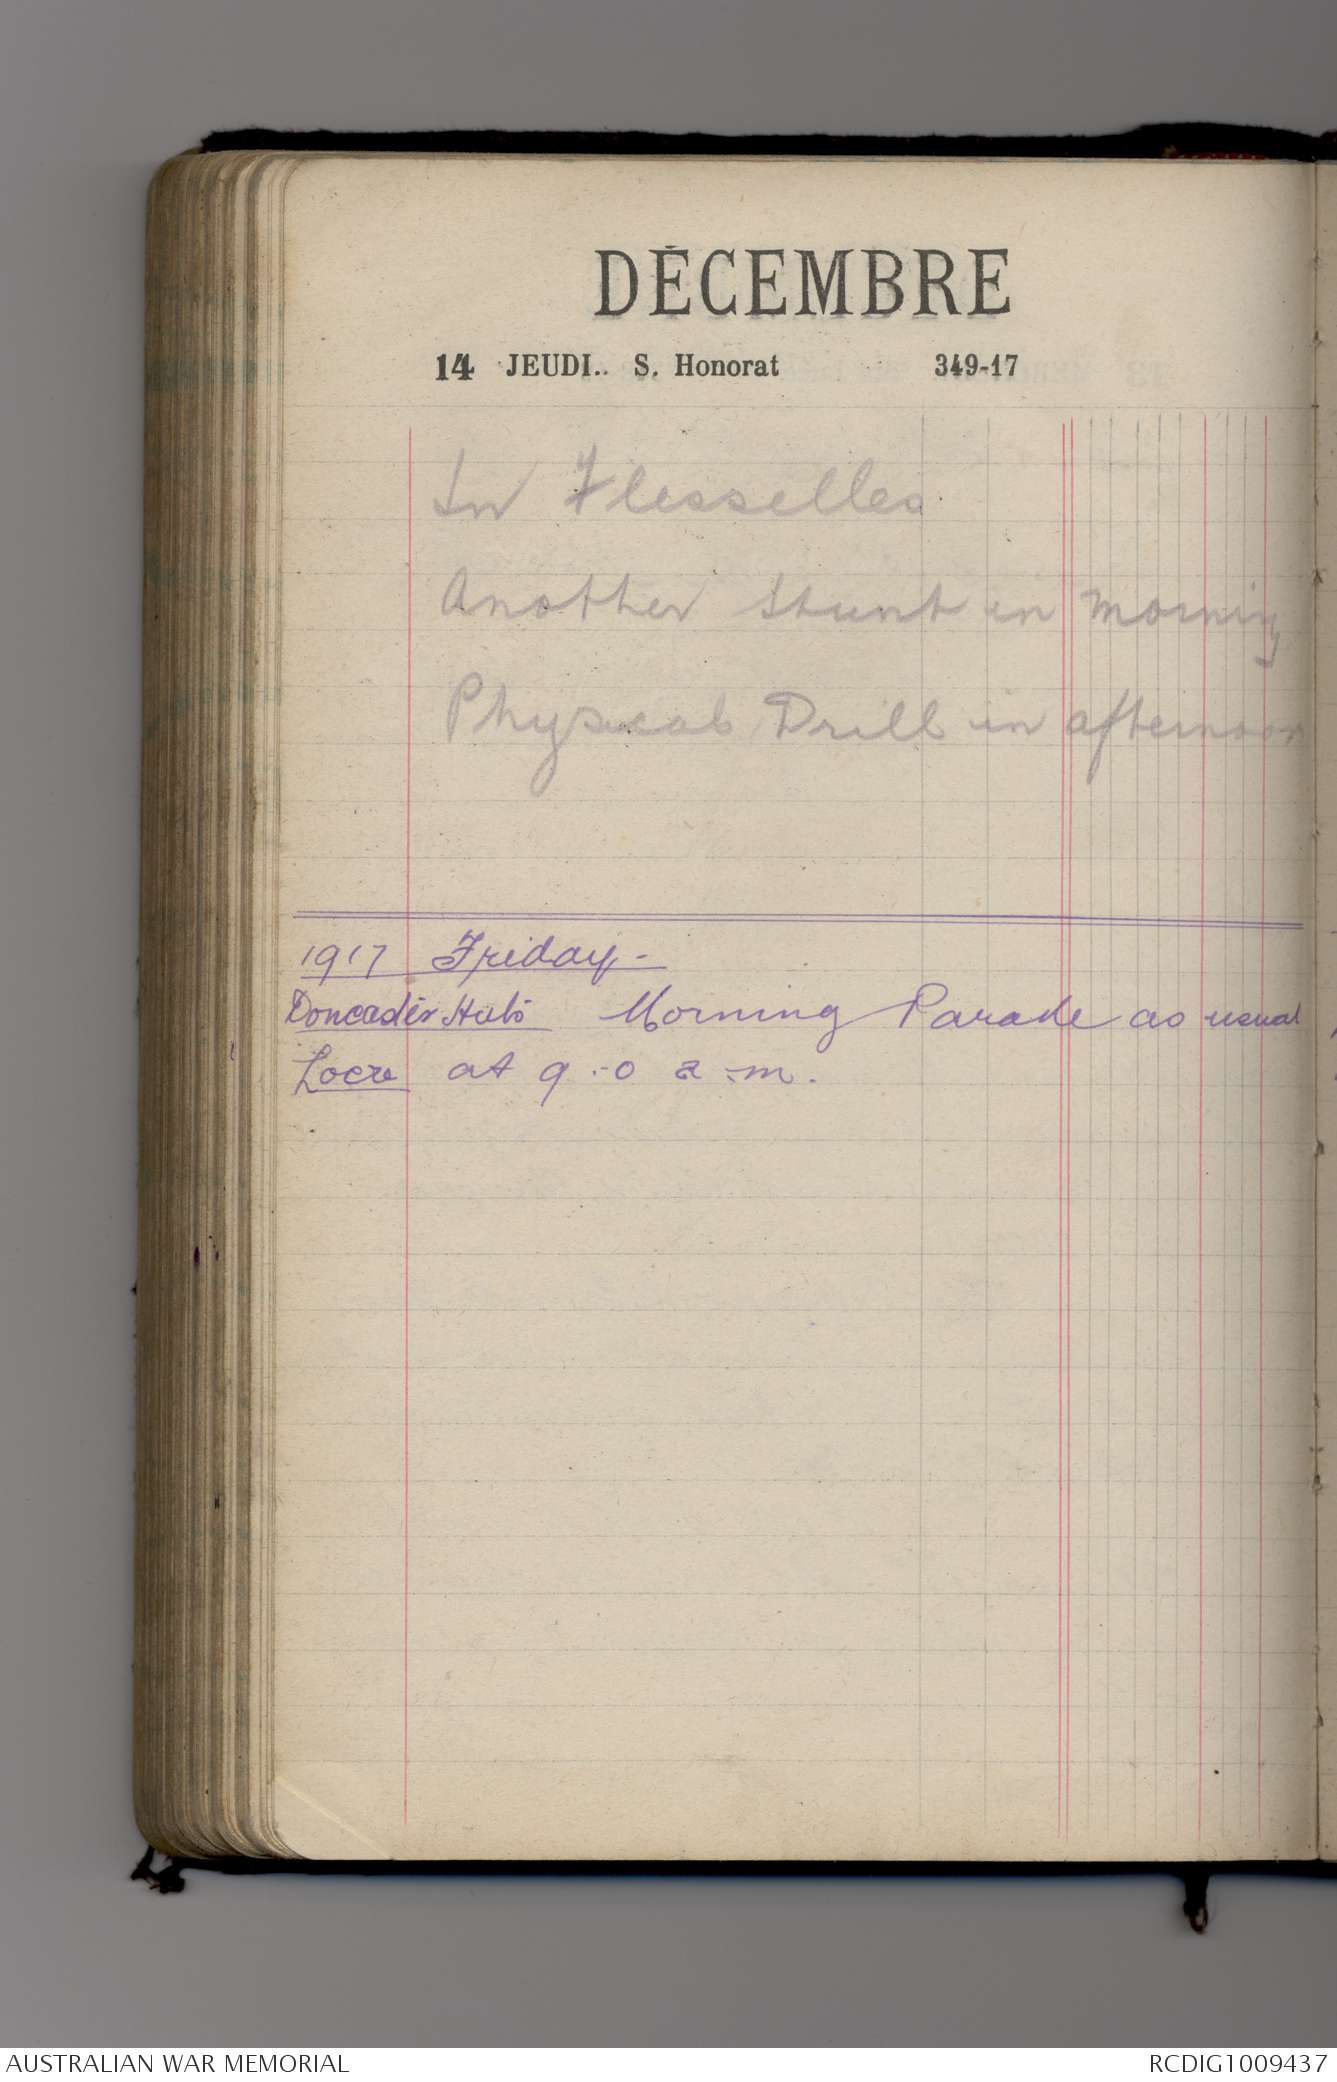 DÉCEMBRE
14 JEUDI.. S. Honorat 349-17
In Flesselles
Another stunt in morning
Physical Drill in afternoon
1917 Friday -
Doncaster Huts Morning Parade as usual
Locre at 9.-0 a.m.
AUSTRALIAN WAR MEMORIAL RCDIG1009437